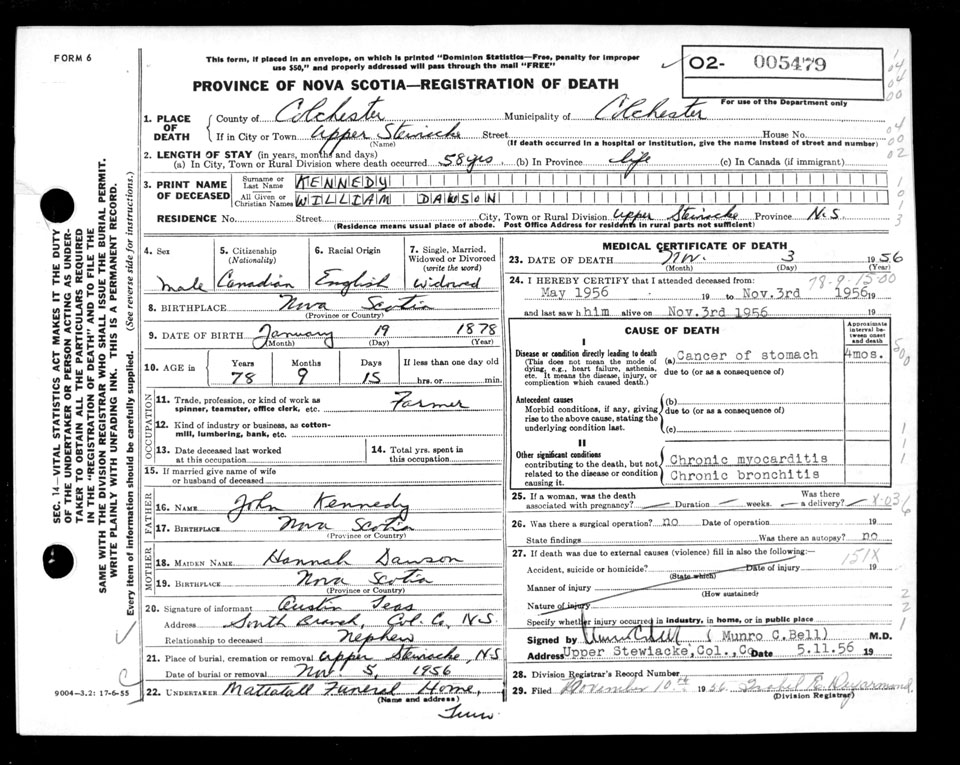 FORM 6
This form, if placed in an envelope, on which is printed "Dominion Statistics—Free, penalty for improper
use $50," and properly addressed will pass through the mail "FREE"
O2- 005479
For use of the Department only
PROVINCE OF NOVA SCOTIA—REGISTRATION OF DEATH
1. PLACE OF DEATH
County of Colchester Municipality of Colchester
If in City or Town Upper Stewiacke Street House No.
(Name) (If death occurred in a hospital or institution, give the name instead of street and number)
2. LENGTH OF STAY (in years, months and days)
(a) In City, Town or Rural Division where death occurred 58 yrs (b) In Province life (c) In Canada (if immigrant)
3. PRINT NAME OF DECEASED
Surname or Last Name KENNEDY
All Given or Christian Names WILLIAM DAWSON
RESIDENCE No. Street City, Town or Rural Division Upper Stewiacke Province N.S.
(Residence means usual place of abode. Post Office Address for residents in rural parts not sufficient)
SEC. 14—VITAL STATISTICS ACT MAKES IT THE DUTY
OF THE UNDERTAKER OR PERSON ACTING AS UNDER-
TAKER TO OBTAIN ALL THE PARTICULARS REQUIRED
IN THE "REGISTRATION OF DEATH" AND TO FILE THE
SAME WITH THE DIVISION REGISTRAR WHO SHALL ISSUE THE BURIAL PERMIT.
WRITE PLAINLY WITH UNFADING INK. THIS IS A PERMANENT RECORD.
Every item of information should be carefully supplied. (See reverse side for instructions.)
4. Sex
male
5. Citizenship (Nationality)
Canadian
6. Racial Origin
English
7. Single, Married, Widowed or Divorced (write the word)
Widowed
8. BIRTHPLACE Nova Scotia
(Province or Country)
9. DATE OF BIRTH January 19 1878
(Month) (Day) (Year)
10. AGE in Years Months Days If less than one day old
78 9 15 hrs. or min.
OCCUPATION
11. Trade, profession, or kind of work as
spinner, teamster, office clerk, etc. Farmer
12. Kind of industry or business, as cotton-
mill, lumbering, bank, etc.
13. Date deceased last worked
at this occupation
14. Total yrs. spent in
this occupation
15. If married give name of wife
or husband of deceased
FATHER
16. NAME John Kennedy
17. BIRTHPLACE Nova Scotia
(Province or Country)
MOTHER
18. MAIDEN NAME Hannah Dawson
19. BIRTHPLACE Nova Scotia
(Province or Country)
20. Signature of informant Austin Teas
Address South Branch, Col. Co, N.S.
Relationship to deceased Nephew
21. Place of burial, cremation or removal Upper Stewiacke, N.S
Date of burial or removal Nov. 5, 1956
22. UNDERTAKER Mattatall Funeral Home,
(Name and address)
Truro
9004-3.2: 17-6-55
MEDICAL CERTIFICATE OF DEATH
23. DATE OF DEATH Nov. 3 1956
(Month) (Day) (Year)
24. I HEREBY CERTIFY that I attended deceased from:
May 1956 19 to Nov.3rd 1956 19
and last saw him alive on Nov.3rd 1956 19
CAUSE OF DEATH
Approximate interval between onset and death
I
Disease or condition directly leading to death
(This does not mean the mode of
dying, e.g., heart failure, asthenia,
etc. It means the disease, injury, or
complication which caused death.)
(a) Cancer of stomach 4mos.
due to (or as a consequence of)
Antecedent causes
Morbid conditions, if any, giving
rise to the above cause, stating the
underlying condition last.
(b)
due to (or as a consequence of)
(c)
II
Other significant conditions
contributing to the death, but not
related to the disease or condition
causing it.
Chronic myocarditis
Chronic bronchitis
25. If a woman, was the death
associated with pregnancy? Duration weeks. Was there a delivery?
26. Was there a surgical operation? no Date of operation 19
State findings Was there an autopsy? no
27. If death was due to external causes (violence) fill in also the following:
151X
Accident, suicide or homicide? Date of injury 19
(State which)
Manner of injury
(How sustained)
Nature of injury
Specify whether injury occurred in industry, in home, or in public place
Signed by (Munro C.Bell) M.D.
Address Upper Stewiacke,Col.,Co Date 5.11.56 19
28. Division Registrar's Record Number
29. Filed November 10th 1956
(Division Registrar)